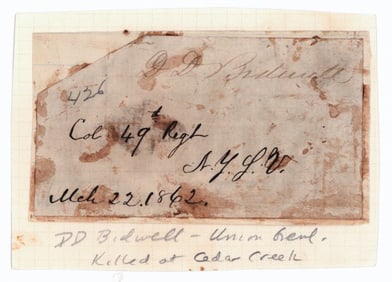 D D Bidwell
426
Col 49t Regt
N.Y.S.V.
Mch 22. 1862.
DD Bidwell - Union Genl.
Killed at Cedar Creek